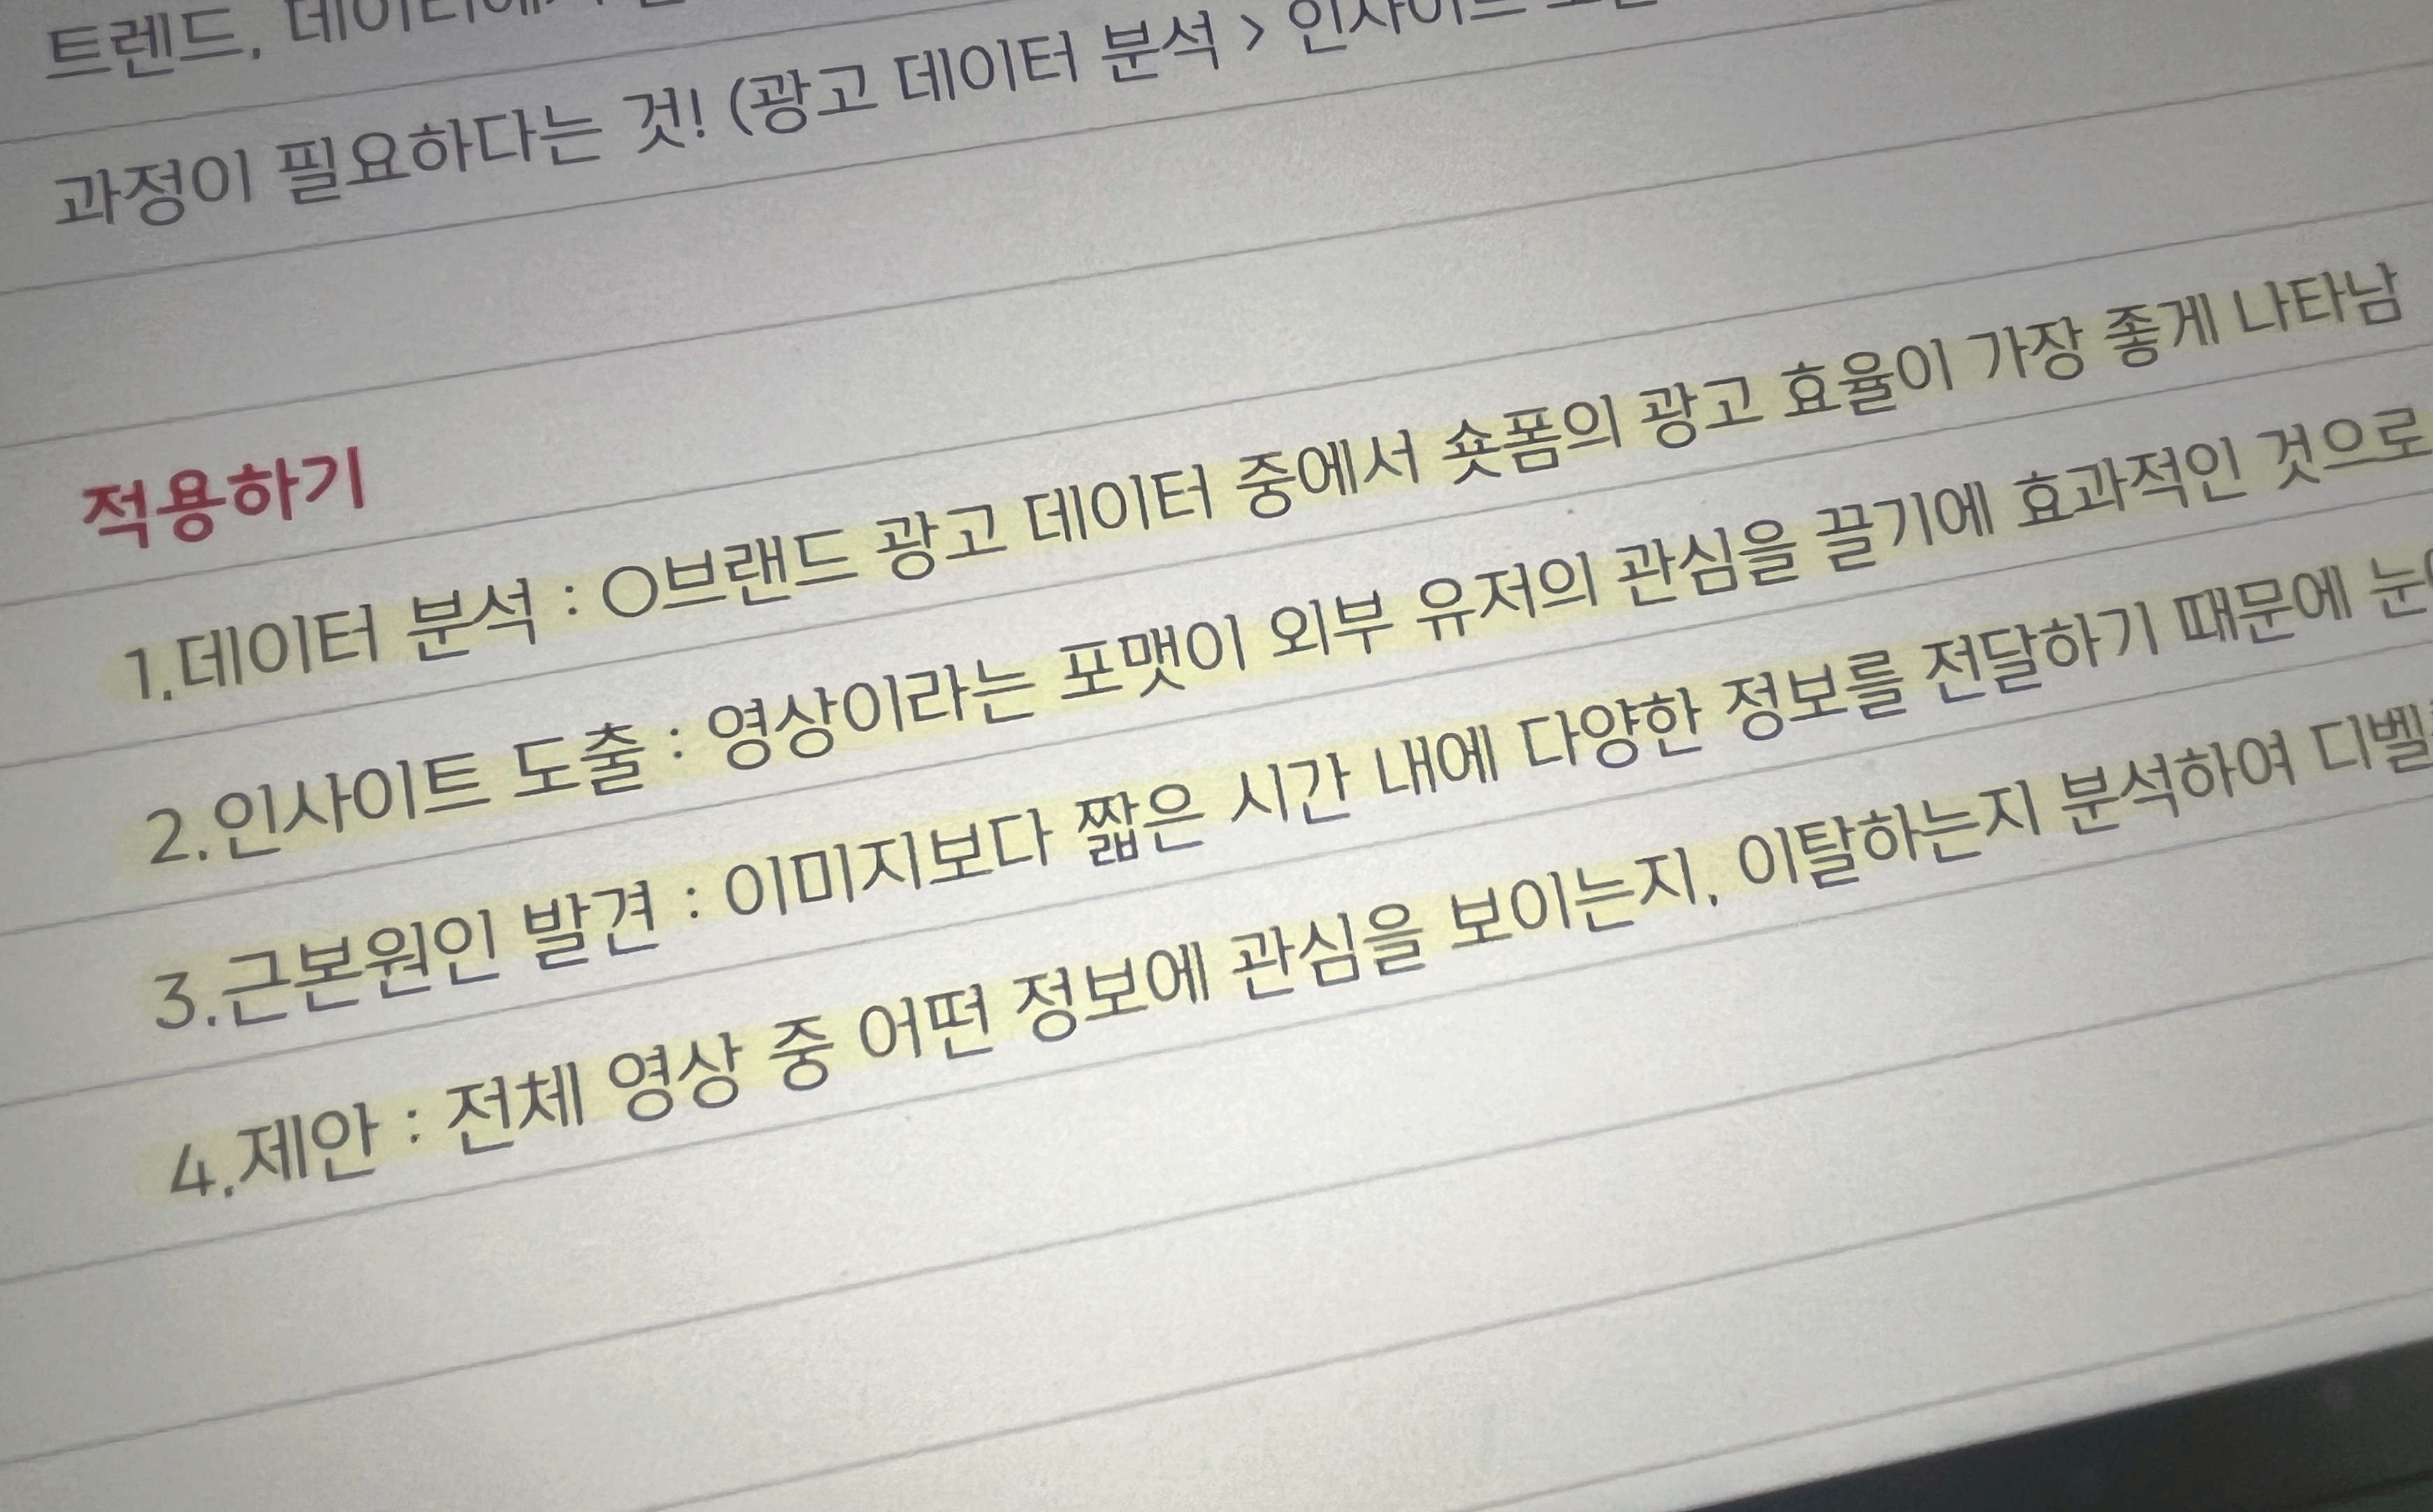 트렌드, 데이터에서
과정이 필요하다는 것! (광고 데이터 분석 > 인사이트
적용하기
1.데이터 분석 : O브랜드 광고 데이터 중에서 숏폼의 광고 효율이 가장 좋게 나타남
2.인사이트 도출 : 영상이라는 포맷이 외부 유저의 관심을 끌기에 효과적인 것으로
3.근본원인 발견 : 이미지보다 짧은 시간 내에 다양한 정보를 전달하기 때문에
4.제안 : 전체 영상 중 어떤 정보에 관심을 보이는지, 이탈하는지 분석하여